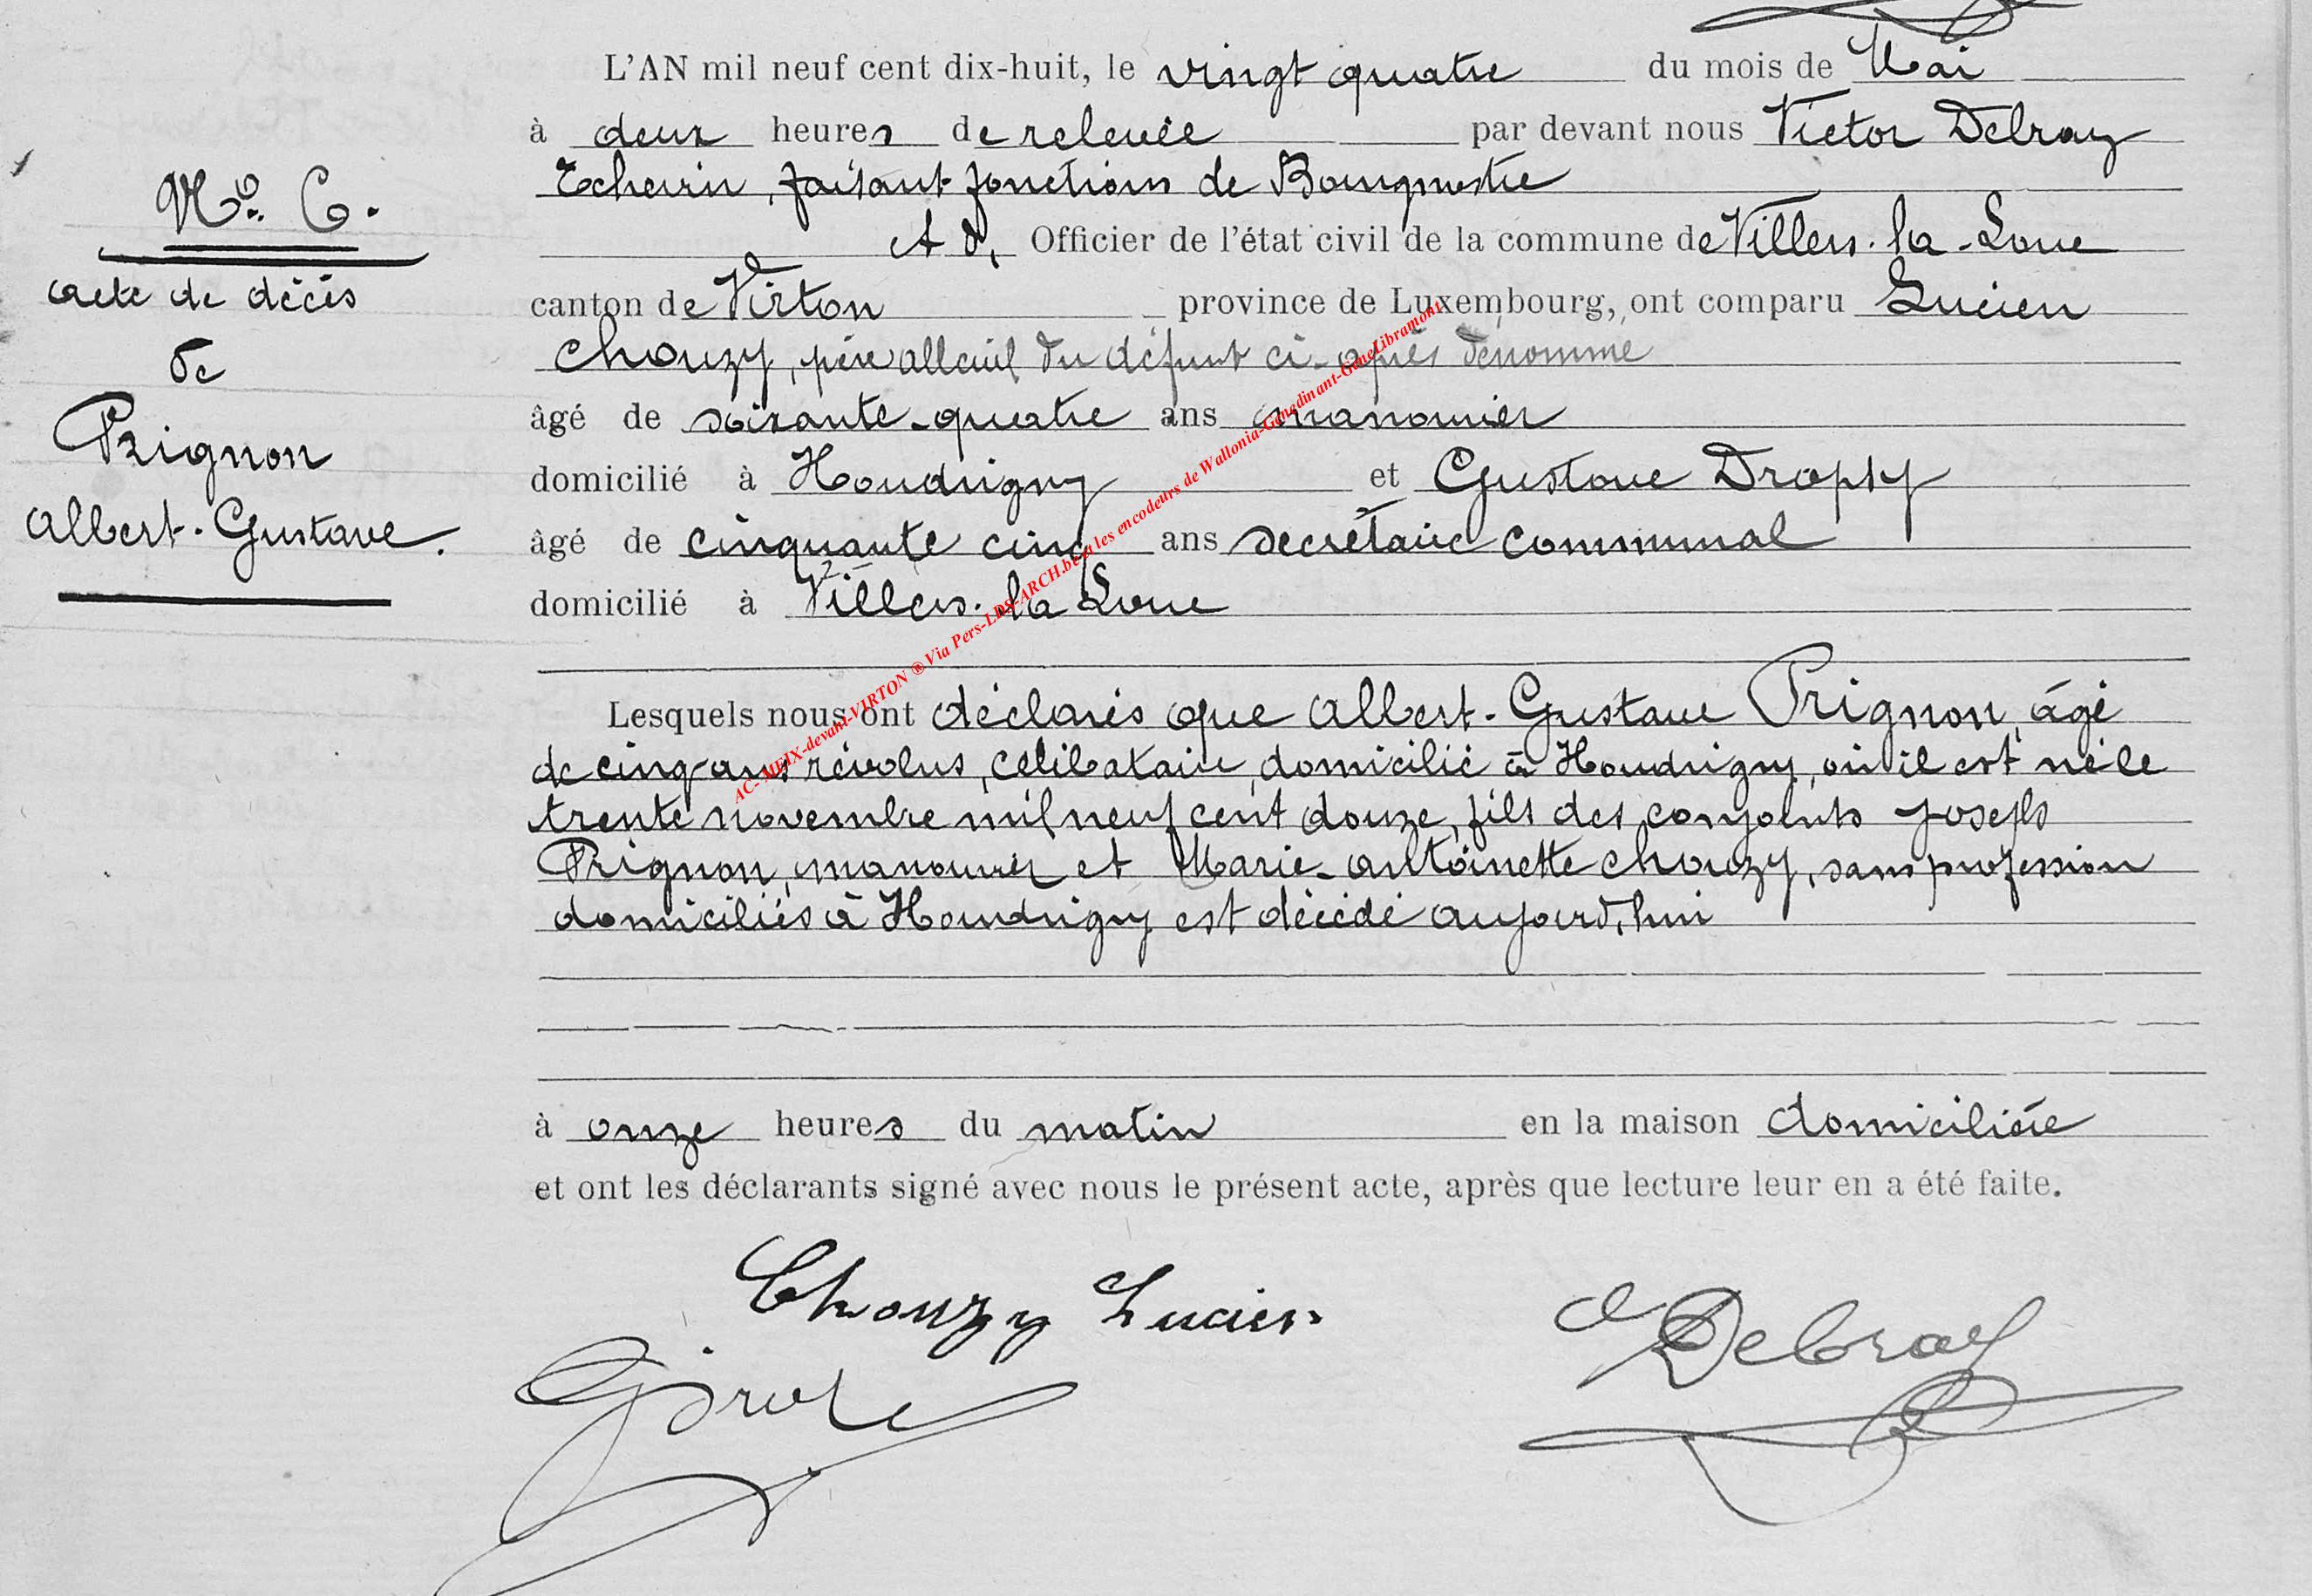 L'AN mil neuf cent dix-huit, le vingt quatre du mois de Mai
à deux heures de relevée par devant nous Victor Debray
Echevin, faisant fonctions de Bourgmestre
Officier de l'état civil de la commune de Villers-la-Loue
canton de Virton province de Luxembourg, ont comparu Lucien
Chouzy, père alleuil du défunt ci-après dénommé
âgé de soixante-quatre ans manouvrier
domicilié à Houdrigny et Gustave Dropsy
âgé de cinquante cinq ans secrétaire communal
domicilié à Villers-la Loue
Lesquels nous ont déclarés que Albert-Gustave Prignon, âgé
de cinq ans révolus, célibataire, domicilié à Houdrigny, où il est né le
trente novembre mil neuf cent douze, fils des conjoints Joseph
Prignon, manouvrier et Marie-Antoinette Chouzy, sans profession
domiciliés à Houdrigny est décédé aujourd'hui
à onze heures du matin en la maison domiciliée
et ont les déclarants signé avec nous le présent acte, après que lecture leur en a été faite.
Chouzy Lucien
Debray
No. 6.
acte de décès
de
Prignon
Albert-Gustave.
AC-MEIX-devant-VIRTON ® Via Pers-LDS-ARCH.be et les encodeurs de Wallonia-Genedinant-GeneLibramont